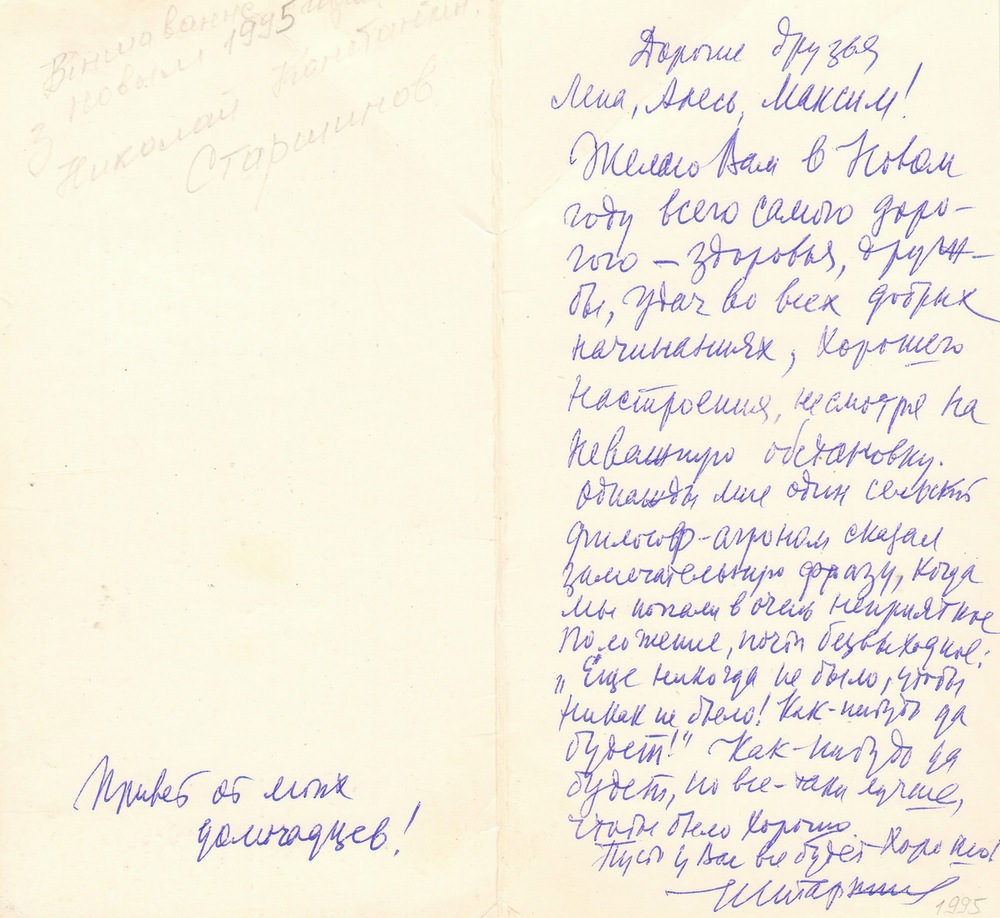 Віншаванне
З новым 1995
Николай Константин.
Старшинов
Привет от моих
домочадцев!
Дорогие друзья
Лена, Алесь, Максим!
Желаю Вам в Новом
году всего самого доро-
гого – здоровья, друж-
бы, удач во всех добрых
начинаниях, хорошего
настроения, несмотря на
неважную обстановку.
Однажды мне один сельский
философ-агроном сказал
замечательную фразу, когда
мы попали в очень неприятное
положение, почти безвыходное:
„Еще никогда не было, чтобы
никак не было! Как-нибудь да
будет!" Как-нибудь да
будет, но все-таки лучше,
чтобы было хорошо.
Пусть у Вас все будет хорошо!
Н Старшинов
1995